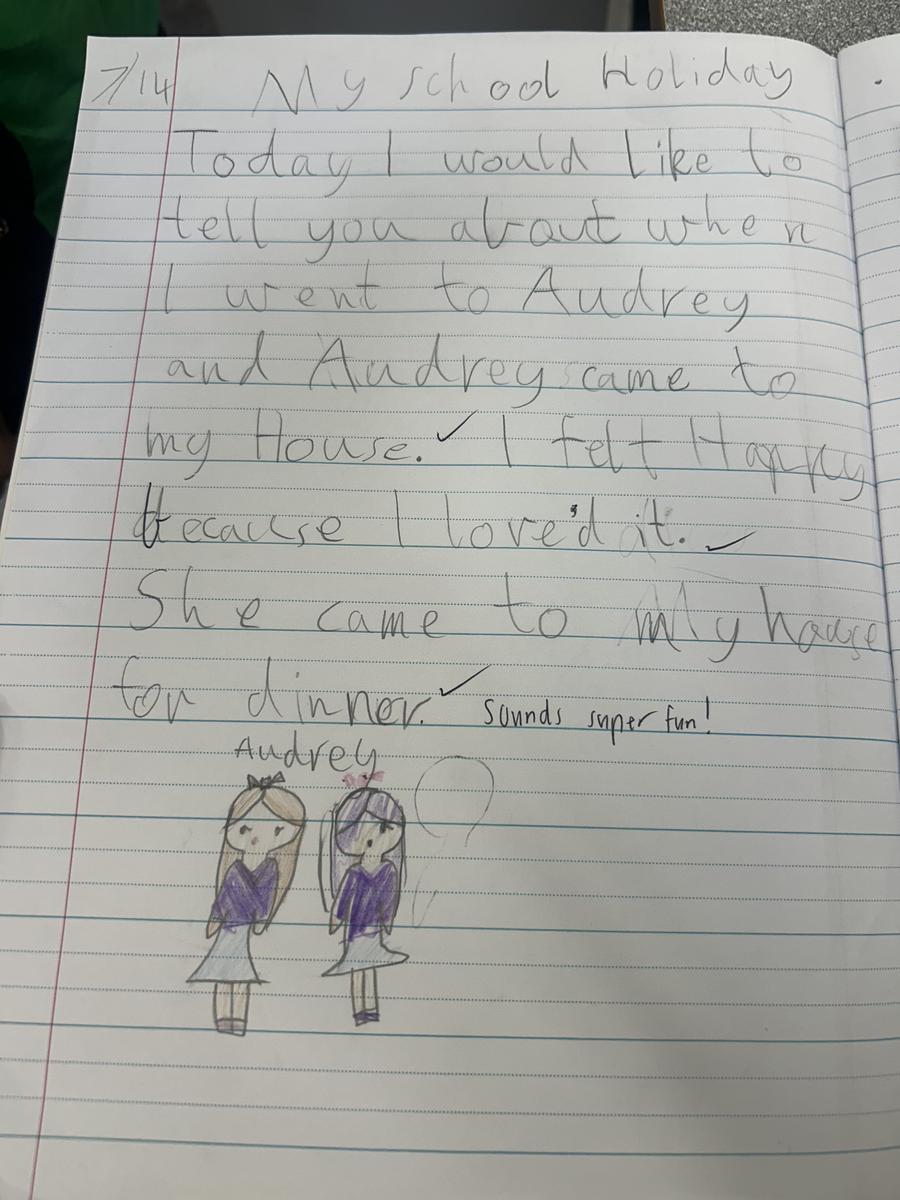 7/14 My school Holiday
Today I would like to
tell you about when
I went to Audrey
and Audrey came to
my House. I felt Happy
because I love'd it.
She came to My house
for dinner. Sounds super fun!
Audrey